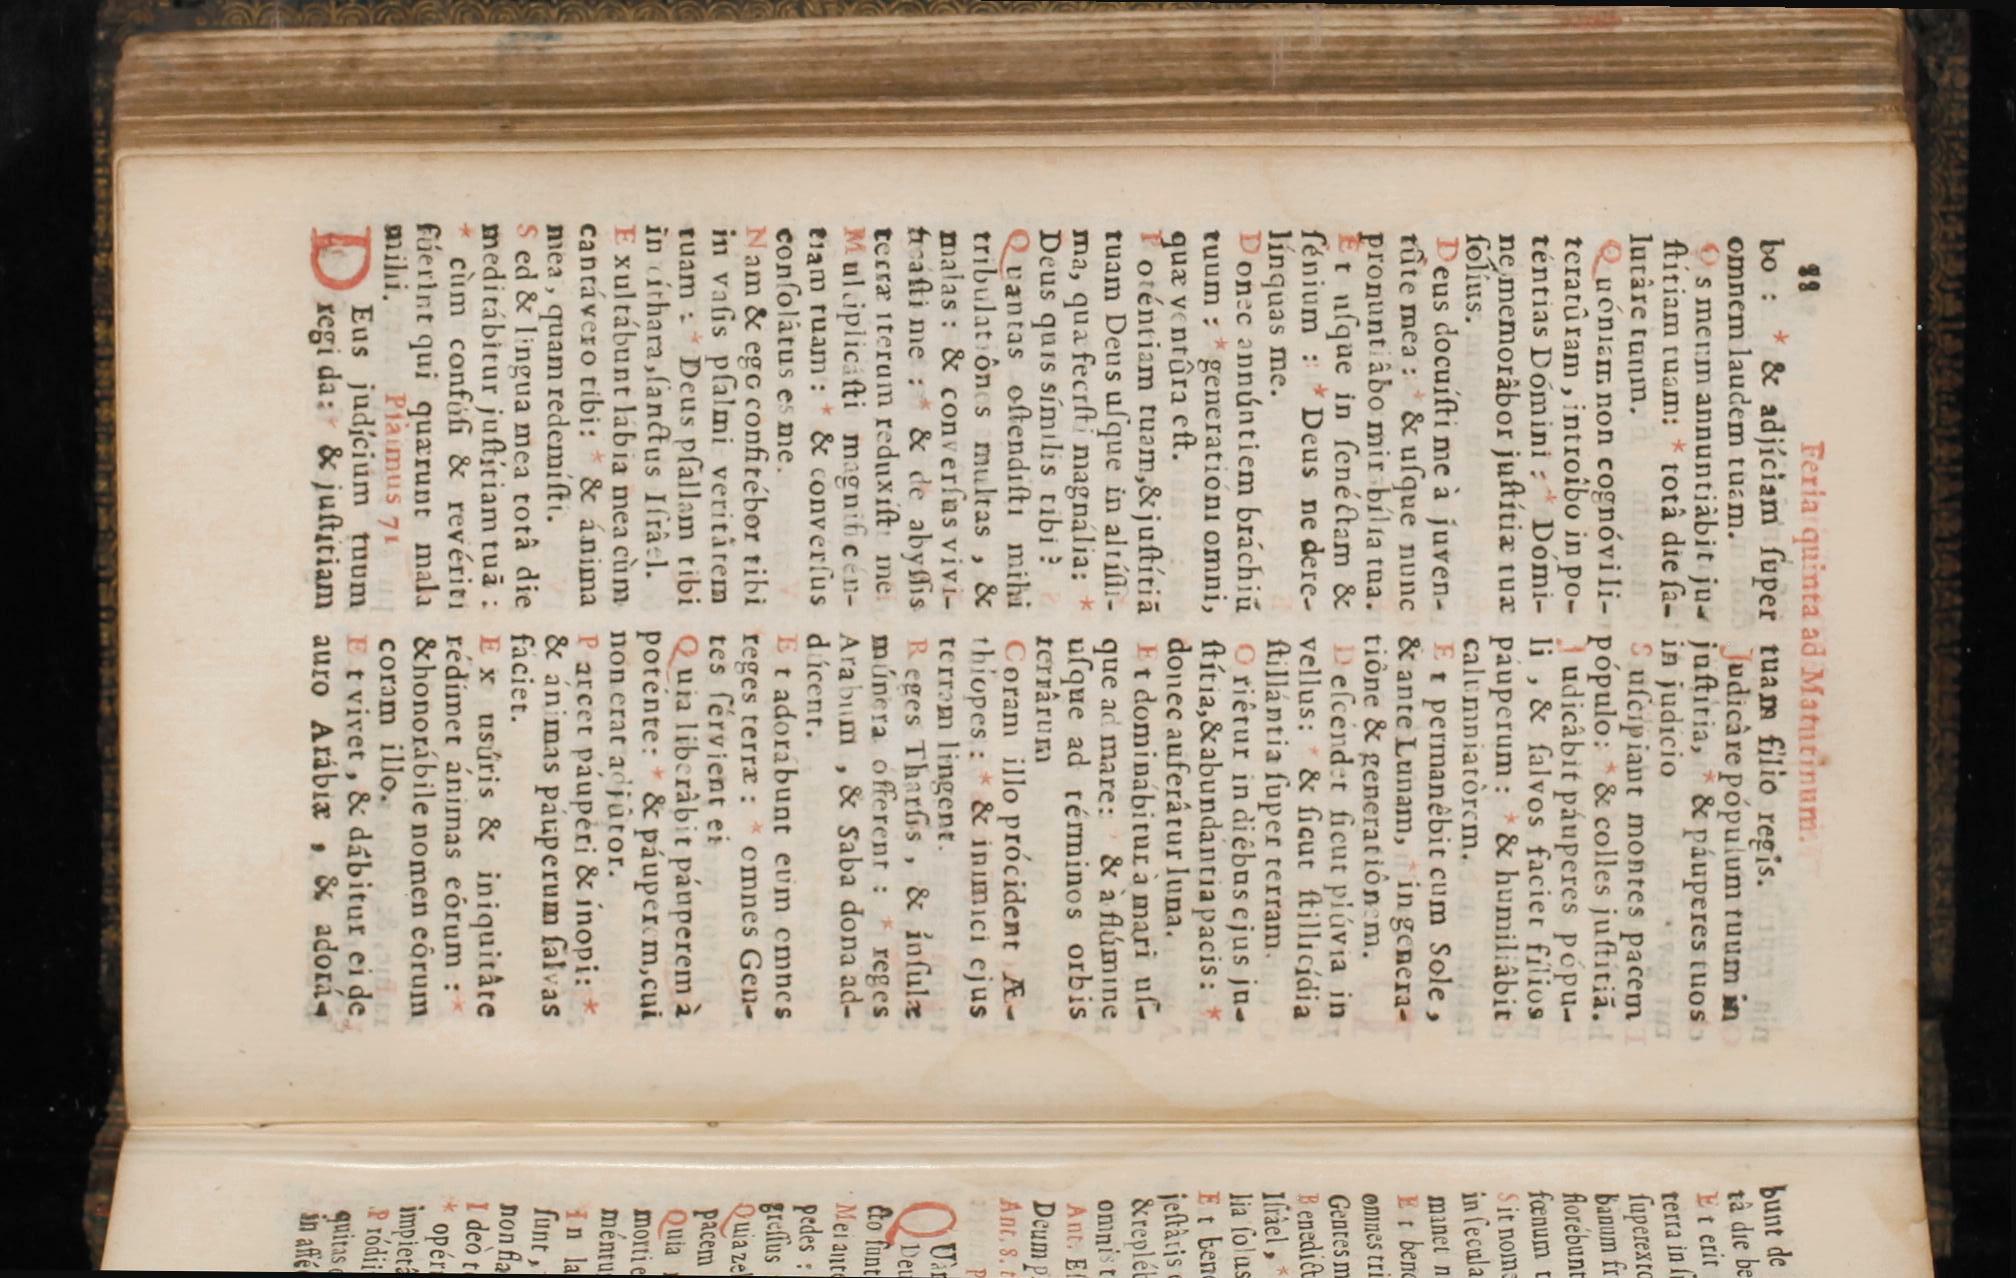 88
Feria quinta ad Matutinum.
bo : * & adjíciam ſuper
omnem laudem tuam.
Os meum annuntiâbit ju-
ſtítiam tuam: * totâ die ſa-
lutâre tuum.
Quóniam non cognóvi li-
teratûram, introîbo in po-
téntias Dómini : * Dómi-
ne, memorâbor juſtítiæ tuæ
ſolíus.
Deus docuíſti me à juven-
tûte mea : * & uſque nunc
pronuntiâbo mirabília tua.
Et uſque in ſenéctam &
ſénium : * Deus ne dere-
línquas me.
Donec annúntiem bráchiū
tuum : * generatióni omni,
quæ ventûra eſt.
Poténtiam tuam, & juſtítiā
tuam Deus uſque in altíſſi-
ma, quæ fecíſti magnália: *
Deus quis símilis tibi ?
Quantas oſtendíſti mihi
tribulatiônes multas , &
malas : & convérſus vivi-
ficáſti me : * & de abyſſis
terræ iterum reduxíſti me.
Multiplicáſti magnificén-
tiam tuam : * & convérſus
conſolâtus es me.
Nam & ego confitébor tibi
in vaſis pſalmi veritâtem
tuam : * Deus pſallam tibi
in cíthara, ſanctus Iſrâel.
Exultábunt lábia mea cùm
cantávero tibi: * & ánima
mea, quam redemíſti.
Sed & lingua mea totâ die
meditábitur juſtítiam tuā :
* cùm confúſi & revériti
fúerint qui quærunt mala
mihi.
Pſalmus 71
DEus judícium tuum
regi da : * & juſtítiam
tuam fílio regis.
Judicâre pópulum tuum in
juſtítia, * & páuperes tuos
in judício
Suſcípiant montes pacem
pópulo: * & colles juſtítiā.
Judicâbit páuperes pópu-
li , & ſalvos faciet fílios
páuperum : * & humiliâbit
calumniatòrem.
Et permanêbit cum Sole ,
& ante Lunam, * in genera-
tiône & generatiônem.
Deſcéndet ſicut plúvia in
vellus: * & ſicut ſtillicídia
ſtillántia ſuper terram.
Oriêtur in diêbus ejus ju-
ſtítia, & abundántia pacis : *
donec auferâtur luna.
Et dominábitur à mari uſ-
que ad mare: * & à flúmine
uſque ad términos orbis
terrârum
Coram illo prócident Æ-
thíopes : * & inimíci ejus
terram lingent.
Reges Tharſis , & ínſulæ
múnera ófferent : * reges
Arabum , & Saba dona ad-
dícent.
Et adorábunt eum omnes
reges terræ : * omnes Gen-
tes ſérvient ei
Quia liberâbit páuperem à
poténte: * & páuperem, cui
non erat adjûtor.
Parcet páuperi & ínopi: *
& ánimas páuperum ſalvas
fáciet.
Ex usúris & iniquitâte
rédimet ánimas eôrum : *
& honorábile nomen eôrum
coram illo.
Et vivet , & dábitur ei de
auro Arábiæ , & adorá-
bunt de
tâ die be
Et erit
terra in
ſuperexto
banum fr
florébunt
fœnum t
Sit nome
in ſecula
manet n
Et bene
omnes tri
Gentes m
Benedíct
Iſrâel , *
lia ſolus
Et bene
jeſtâtis
& replé
omnis t
Ant. Eſ
Deum p
Ant. 8.
QUàm
Deu
cto ſunt
Mei ante
pedes :
greſſus
Quia zel
pacem
Quia
morti e
méntu
In la
ſunt ,
non fla
Ideò t
* opér
impietâ
Pródi
quitas
in affé